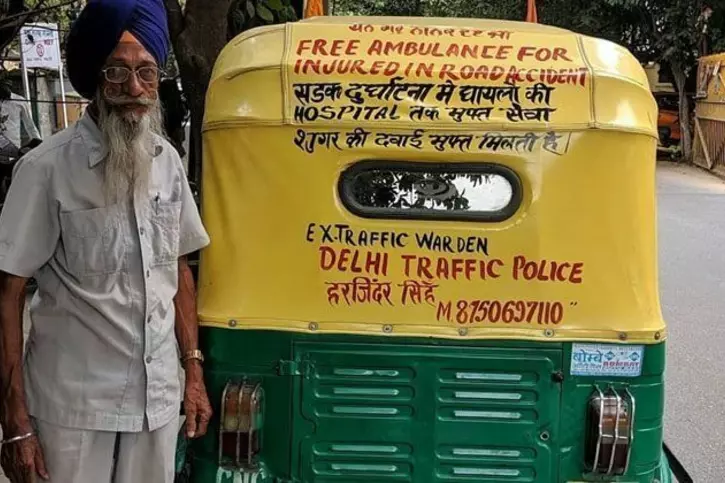 FREE AMBULANCE FOR
INJURED IN ROAD ACCIDENT
सडक दुर्घाटना मे घायलों की
HOSPITAL तक मुफ्त सेवा
शुगर की दवाई मुफ्त मिलती है
EX.TRAFFIC WARDEN
DELHI TRAFFIC POLICE
हरजिंदर सिंह
M.8750697110
बोम्बे
BOMBAY